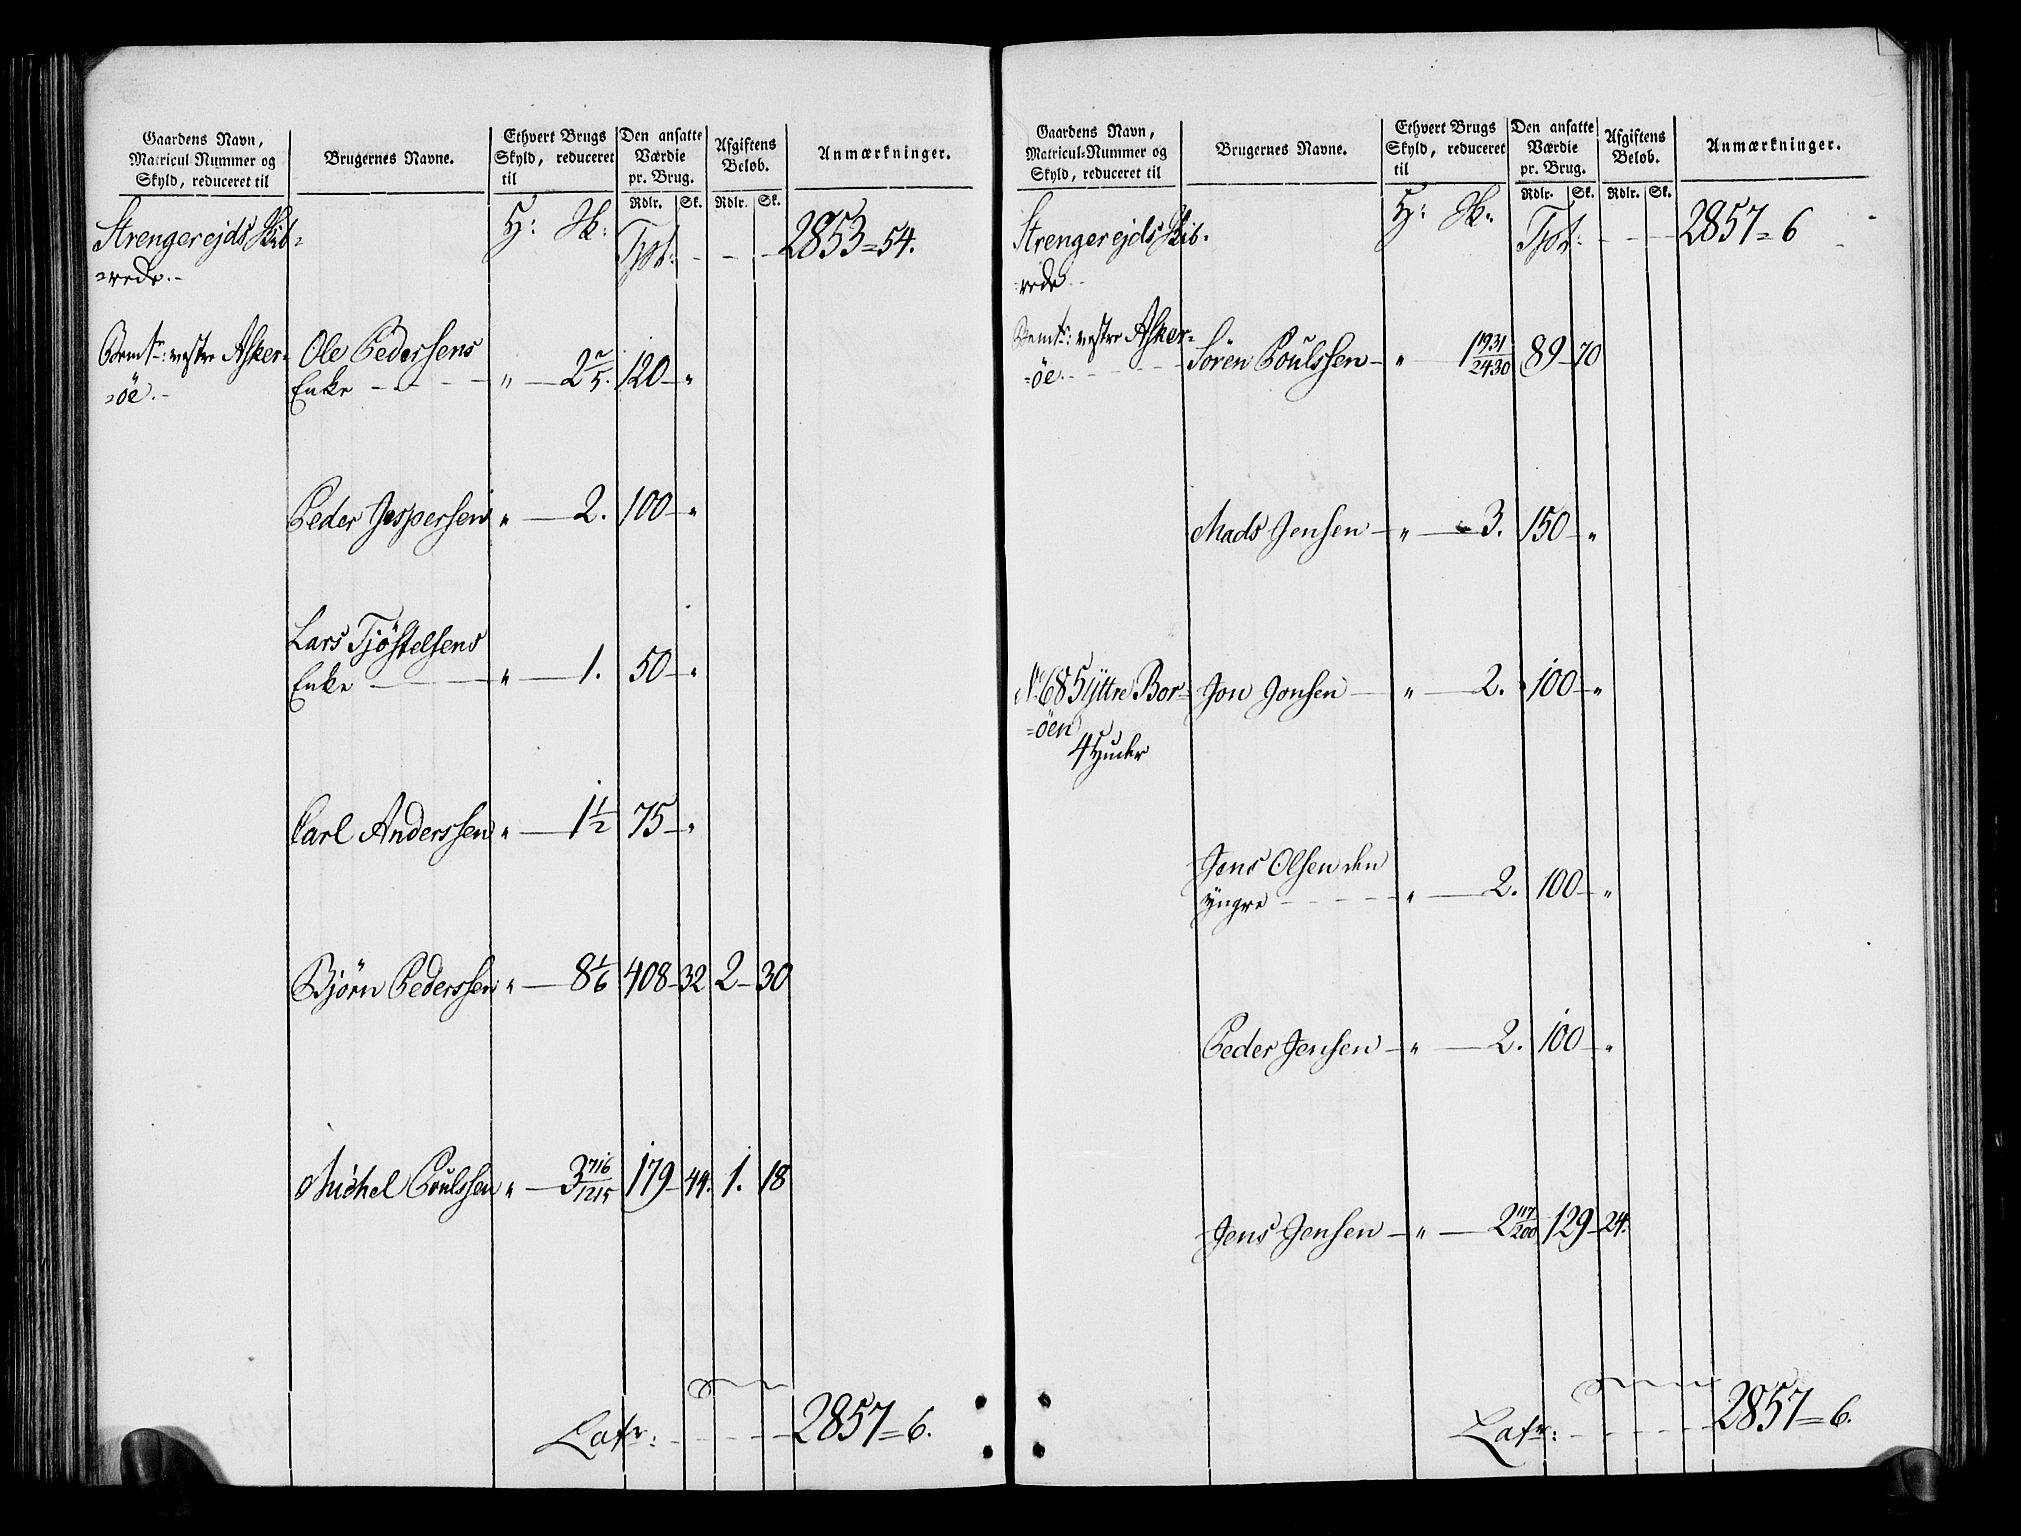 Gaardens Navn,
Matricul-Nummer og
Skyld, reduceret til
Brugernes Navne.
Ethvert Brugs
Skyld, reduceret
til
Den ansatte
Værdie
pr. Brug.
Afgiftens
Beløb.
Anmærkninger.
Rdlr. Sk. Rdlr. Sk.
Strengerejds Skib-
-rede.-
H: Sk:
Tpt: - - - 2853=54.
vestre Asker-
-öe.-
Ole Pedersens
Enke - - - - " — 2 2/5. 120 - "
Peder Jespersen " — 2. 100 - "
Lars Tjöstelsens
Enke — " — 1. 50 - "
Carl Anderssen " — 1 1/2 75 - "
Bjørn Pederssen " — 8 1/6 408 - 32 2 - 30
Michel Poulssen " — 3 716/1215 179 - 44. 1. 18
Latr: - - - - 2857=6.
Gaardens Navn,
Matricul-Nummer og
Skyld, reduceret til
Brugernes Navne.
Ethvert Brugs
Skyld, reduceret
til
Den ansatte
Værdie
pr. Brug.
Afgiftens
Beløb.
Anmærkninger.
Rdlr. Sk. Rdlr. Sk.
Strengerejds Skib-
-rede.-
H: Sk:
Tpt: - - - 2857=6
vestre Asker-
-öe. - - - -
Sören Poulssen - " 1 1931/2430 89 - 70
Mads Jensen - " — 3. 150 - "
No 68 Syttre Bor-
-öen
4 Huder
Jon Jonsen — " — 2. 100 - "
Jens Olsen den
yngre - - - - " — 2. 100 - "
Peder Jensen - " — 2. 100 - "
Jens Jensen - " — 2 117/200 129 - 24.
Latr: - - - - 2857=6.